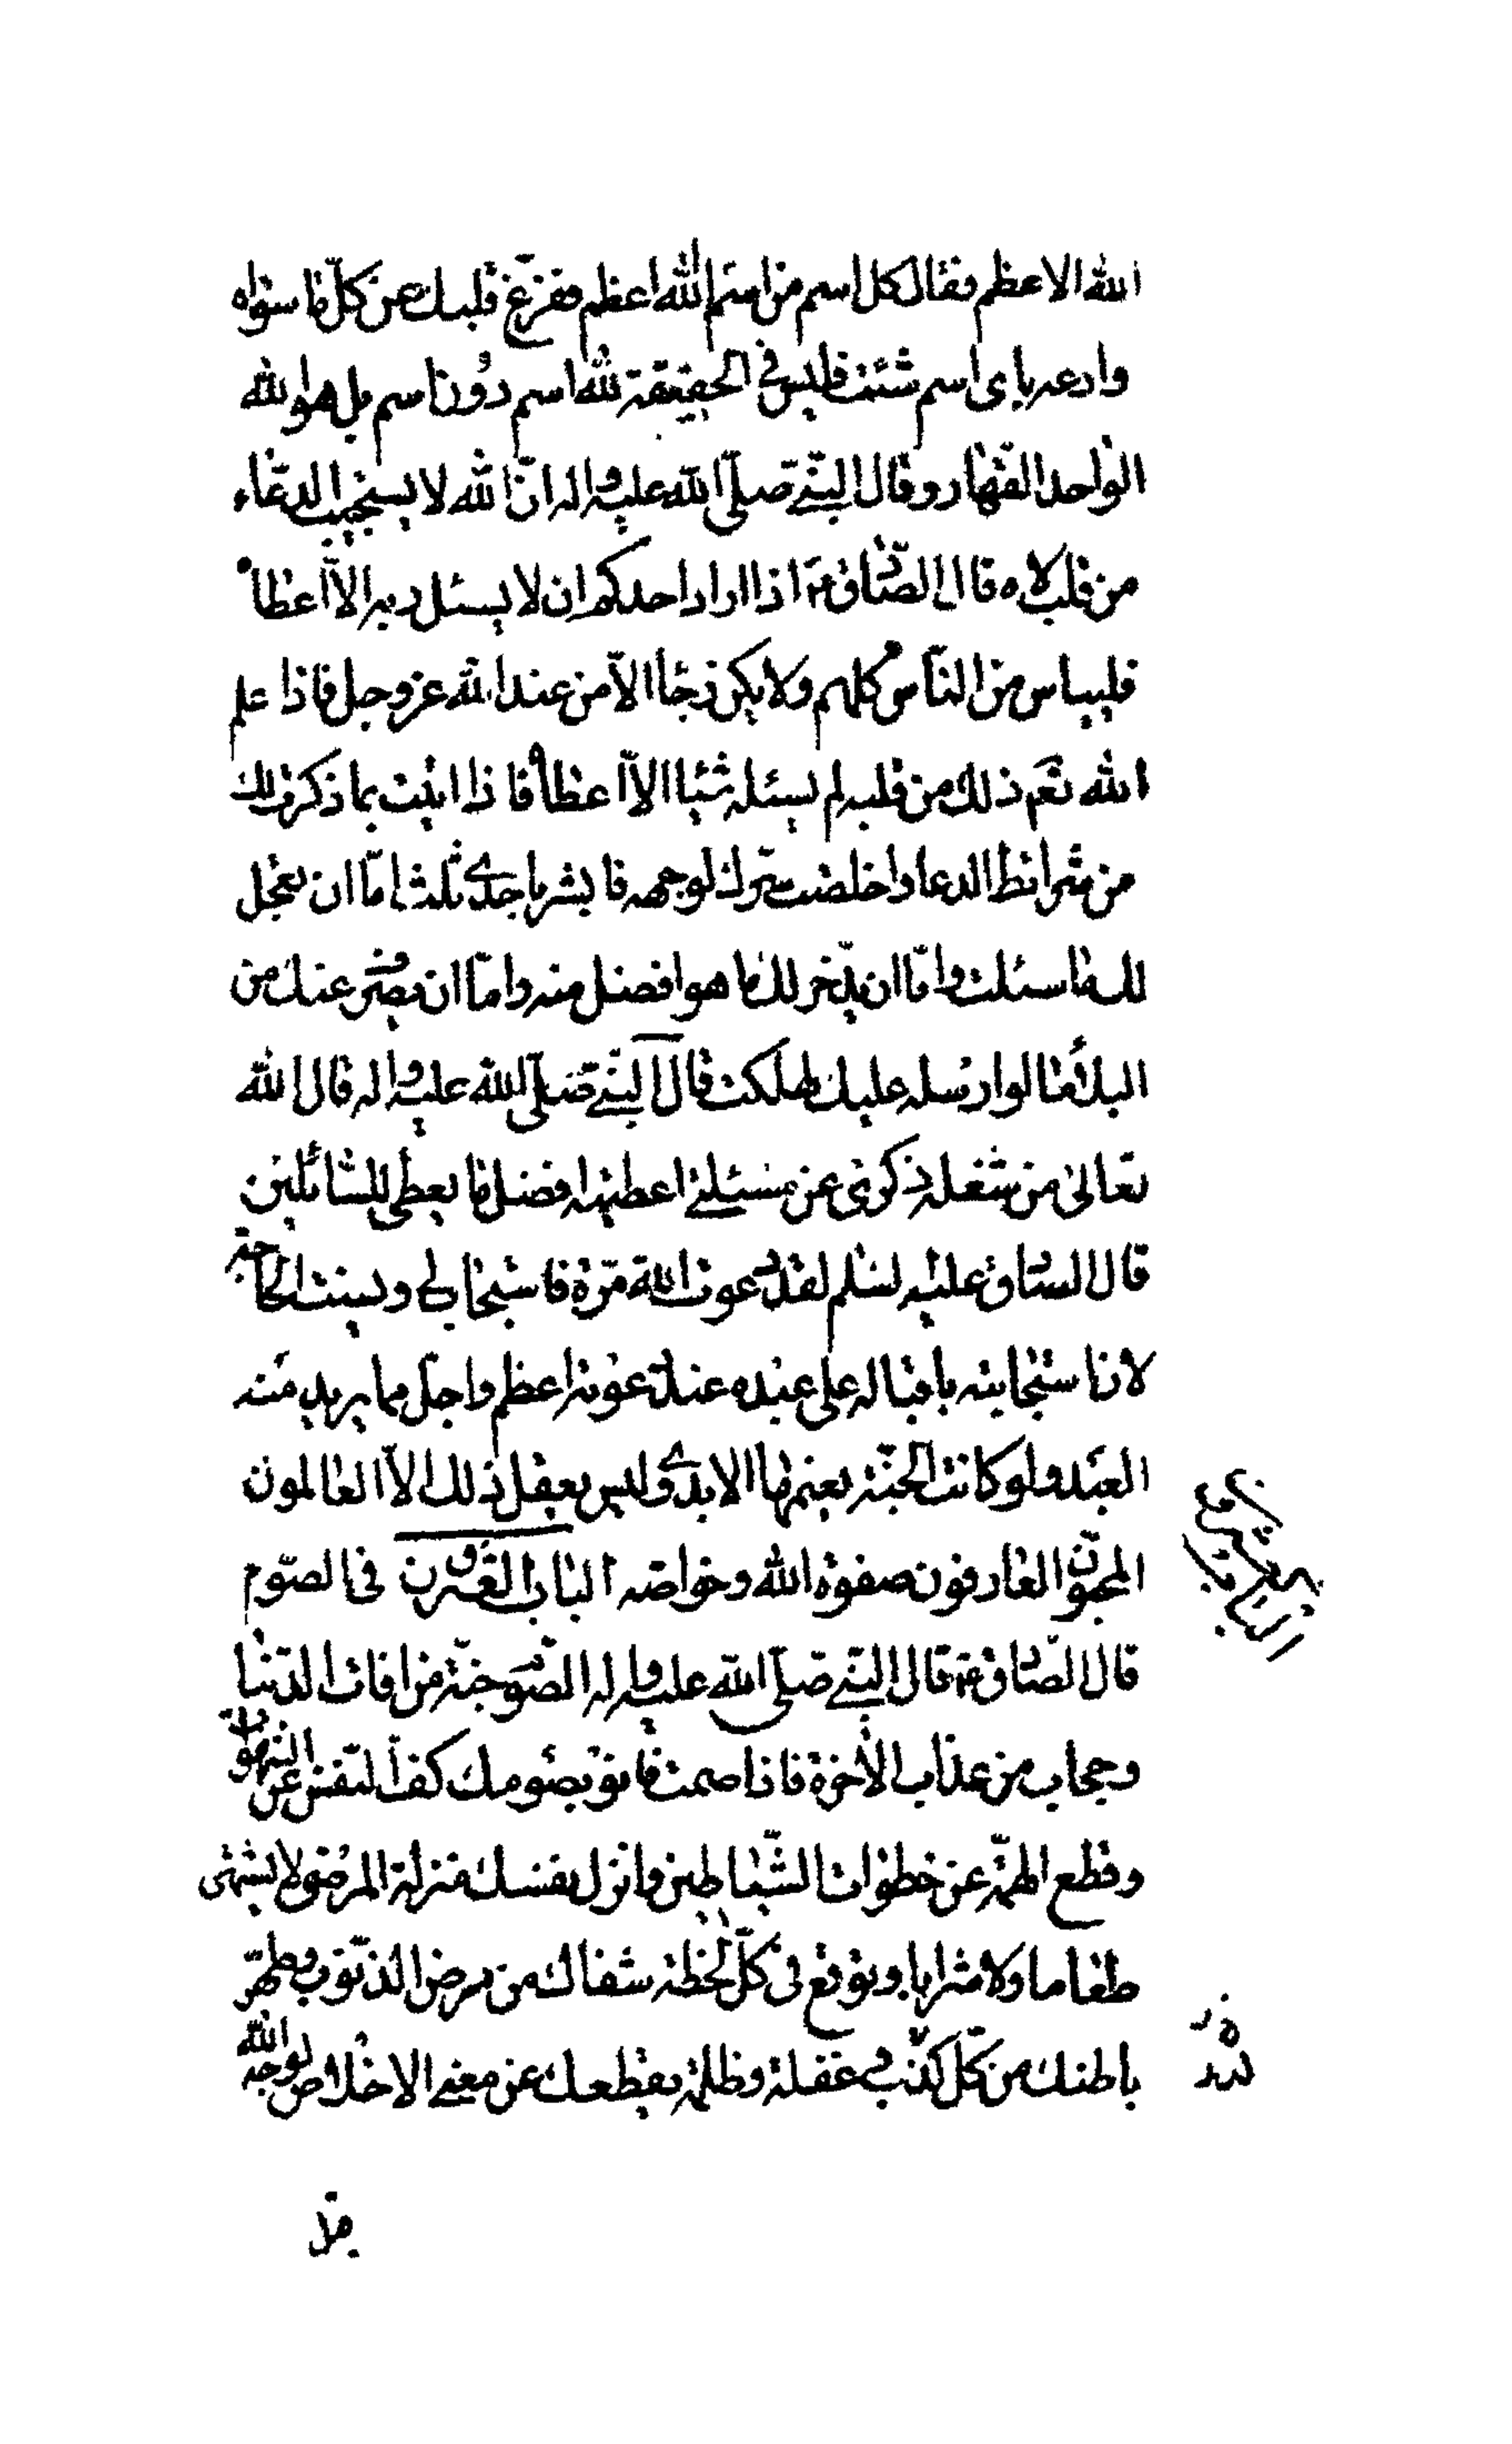 الله الاعظم فقال كل اسم من اسم الله اعظم ففرّغ قلبك عن كلّ ما سواه
وادعه باى اسم شئت فليس فى الحقيقة لله اسم دون اسم بل هو الله
الواحد القهار وقال النبّى صلّى الله عليه واله انّ الله لا يستجيب الدعاء
من قلب لاه قال الصّادق ع اذا اراد احدكم ان لا يسئل ربه الاّ اعطاه
فليياس من الناس كلهم ولا يكن رجاء الاّ من عند الله عز وجل فاذا علم
الله تعم ذلك من قلبه لم يسئله شيئا الاّ اعطاه فاذا اتيت بما ذكرت لك
من شرائط الدعا واخلصت سرّك لوجهه فابشر باحدى ثلث امّا ان يعجل
لك ما سئلت وامّا ان يدّخر لك ما هو افضل منه وامّا ان يصرف عنك من
البلاء ما لو ارسله عليك لهلكت قال النبّى صلّى الله عليه واله قال الله
تعالى من شغله ذكرى عن مسئلتى اعطيته افضل ما يعطى للسّائلين
قال الصادق عليه لسلم لقد دعوت الله مرّة فاستجاب لى ونسيت الحاجة
لان استجابته باقباله على عبده عند دعوته اعظم واجلّ مما يريد منه
العبد ولو كانت الجنّة ونعيمها الابدى وليس يعقل ذلك الاّ العالمون
المحبّون العارفون صفوة الله وخواصه الباب العشرون فى الصّوم
قال الصّادق ع قال النبّى صلّى الله عليه واله الصّوم جنّة من افات الدنيا
وحجاب من عذاب الاخرة فاذا صمت فانو بصومك كف النّفس عن الشهوات
وقطع الهمّة عن خطوات الشّياطين وانزل نفسك منزلة المرضى لا يشتهى
طعاما ولا شرابا وتوقع فى كلّ لحظة شفاك من مرض الذّنوب وطهّر
باطنك من كلّ كذب وغفلة وظلمة يقطعك عن معنى الاخلاص لوجه الله